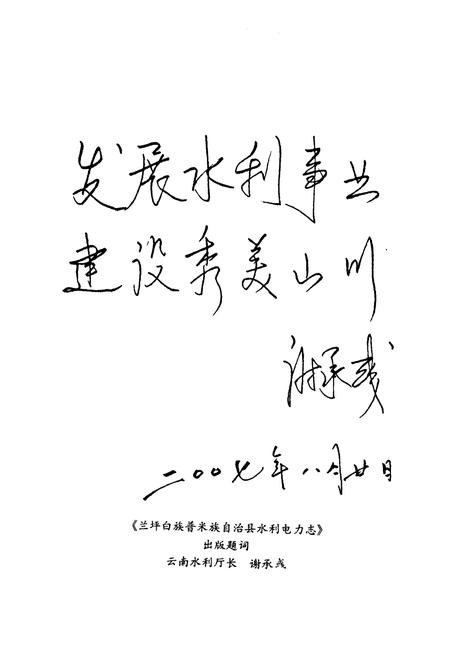 发展水利事业
建设秀美山川
谢承彧
二〇〇七年八月廿日
《兰坪白族普米族自治县水利电力志》
出版题词
云南水利厅长　谢承彧